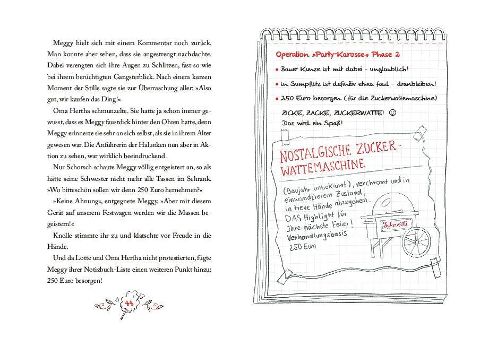 Meggy hielt sich mit einem Kommentar noch zurück.
Man konnte aber sehen, dass sie angestrengt nachdachte.
Dabei verengten sich ihre Augen zu Schlitzen, fast so wie
bei ihrem berüchtigten Gangsterblick. Nach einem kurzen
Moment der Stille sagte sie zur Überraschung aller: »Also
gut, wir kaufen das Ding!«
Oma Hertha schmunzelte. Sie hatte ja schon immer ge-
wusst, dass es Meggy faustdick hinter den Ohren hatte, denn
Meggy erinnerte sie sehr an sich selbst, als sie in ihrem Alter
gewesen war. Die Anführerin der Halunken nun aber in Ak-
tion zu sehen, war wirklich beeindruckend.
Nur Schorsch schaute Meggy völlig entgeistert an, so als
hätte seine Schwester nicht mehr alle Tassen im Schrank.
»Wo bitteschön sollen wir denn 250 Euro hernehmen?«
»Keine Ahnung«, entgegnete Meggy. »Aber mit diesem
Gerät auf unserem Festwagen werden wir die Massen be-
geistern!«
Knolle stimmte ihr zu und klatschte vor Freude in die
Hände.
Und da Lotte und Oma Hertha nicht protestierten, fügte
Meggy ihrer Notizbuch-Liste einen weiteren Punkt hinzu:
250 Euro besorgen!
44
Operation »Party-Karosse« Phase 2
Bauer Kunze ist mit dabei – unglaublich!
in Gumpflitz ist definitiv etwas faul – dranbleiben!
250 Euro besorgen (für die Zuckerwattemaschine)
ZICKE, ZACKE, ZUCKERWATTE!
Das wird ein Spaß!
NOSTALGISCHE ZUCKER-
WATTEMASCHINE
(Baujahr unbekannt), verchromt und in
einwandfreiem Zustand,
in treue Hände abzugeben.
DAS Highlight für
Ihre nächste Feier!
Verhandlungsbasis
250 Euro